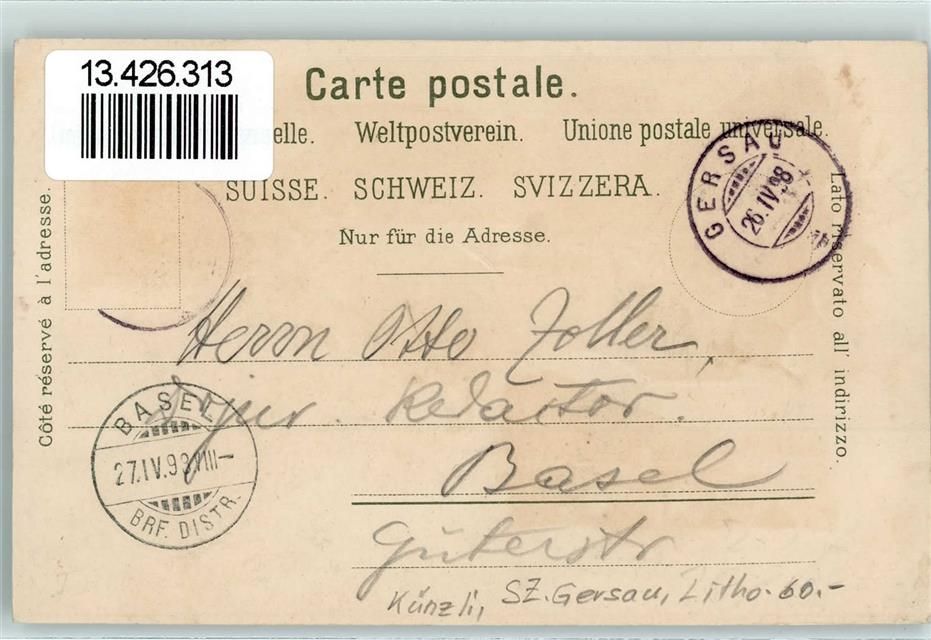 13.426.313
Carte postale.
elle. Weltpostverein. Unione postale universale.
SUISSE. SCHWEIZ. SVIZZERA.
Nur für die Adresse.
Côté réservé à l'adresse.
Lato riservato all' indirizzo.
GERSAU
26.IV.98
Herrn Otto Zoller,
Redactor.
Basel
Güterstr
BASEL
27.IV.98.VIII-
BRF. DISTR.
Künzli, SZ. Gersau, Litho. 60.-